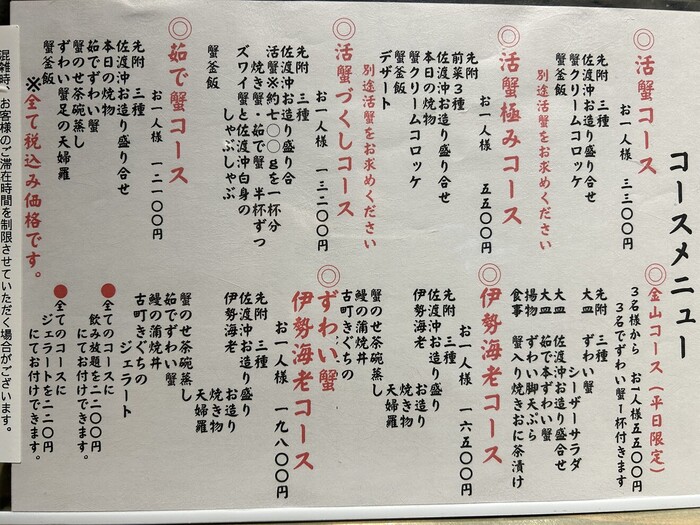 コースメニュー
◎活蟹コース
お一人様 三三〇〇円
先附 三種
佐渡沖お造り盛り合せ
蟹クリームコロッケ
蟹釜飯
別途活蟹をお求めください
◎活蟹極みコース
お一人様 五五〇〇円
先附
前菜3種
佐渡沖お造り盛り合せ
本日の焼物
蟹クリームコロッケ
蟹釜飯
デザート
別途活蟹をお求めください
◎活蟹づくしコース
お一人様 一三二〇〇円
先附 三種
佐渡沖お造り盛り合
活蟹※約七〇〇gを一杯分
焼き蟹・茹で蟹 半杯ずつ
ズワイ蟹と佐渡沖白身の
しゃぶしゃぶ
蟹釜飯
◎茹で蟹コース
お一人様 一二一〇〇円
先附 三種
佐渡沖お造り盛り合せ
本日の焼物
茹でずわい蟹
蟹のせ茶碗蒸し
ずわい蟹足の天婦羅
蟹釜飯
※全て税込み価格です。
◎金山コース(平日限定)
3名様から お一人様五五〇〇円
3名でずわい蟹1杯付きます
先附 三種
大皿 ずわい蟹
シーザーサラダ
大皿 佐渡沖お造り盛合せ
茹で本ずわい蟹
揚物 ずわい脚天ぷら
食事 蟹入り焼きおに茶漬け
◎伊勢海老コース
お一人様 一六五〇〇円
先附 三種
佐渡沖お造り盛り
伊勢海老 お造り
焼き物
天婦羅
蟹のせ茶碗蒸し
鰻の蒲焼丼
古町きぐちの
◎ずわい蟹
伊勢海老コース
お一人様 一九八〇〇円
先附 三種
佐渡沖お造り盛り
伊勢海老 お造り
焼き物
天婦羅
蟹のせ茶碗蒸し
茹でずわい蟹
鰻の蒲焼丼
古町きぐちの
ジェラート
●全てのコースに
飲み放題を二二〇〇円
にてお付けできます。
●全てのコースに
ジェラートを二二〇円
にてお付けできます。
混雑時、お客様のご滞在時間を制限させていただく場合がございます。